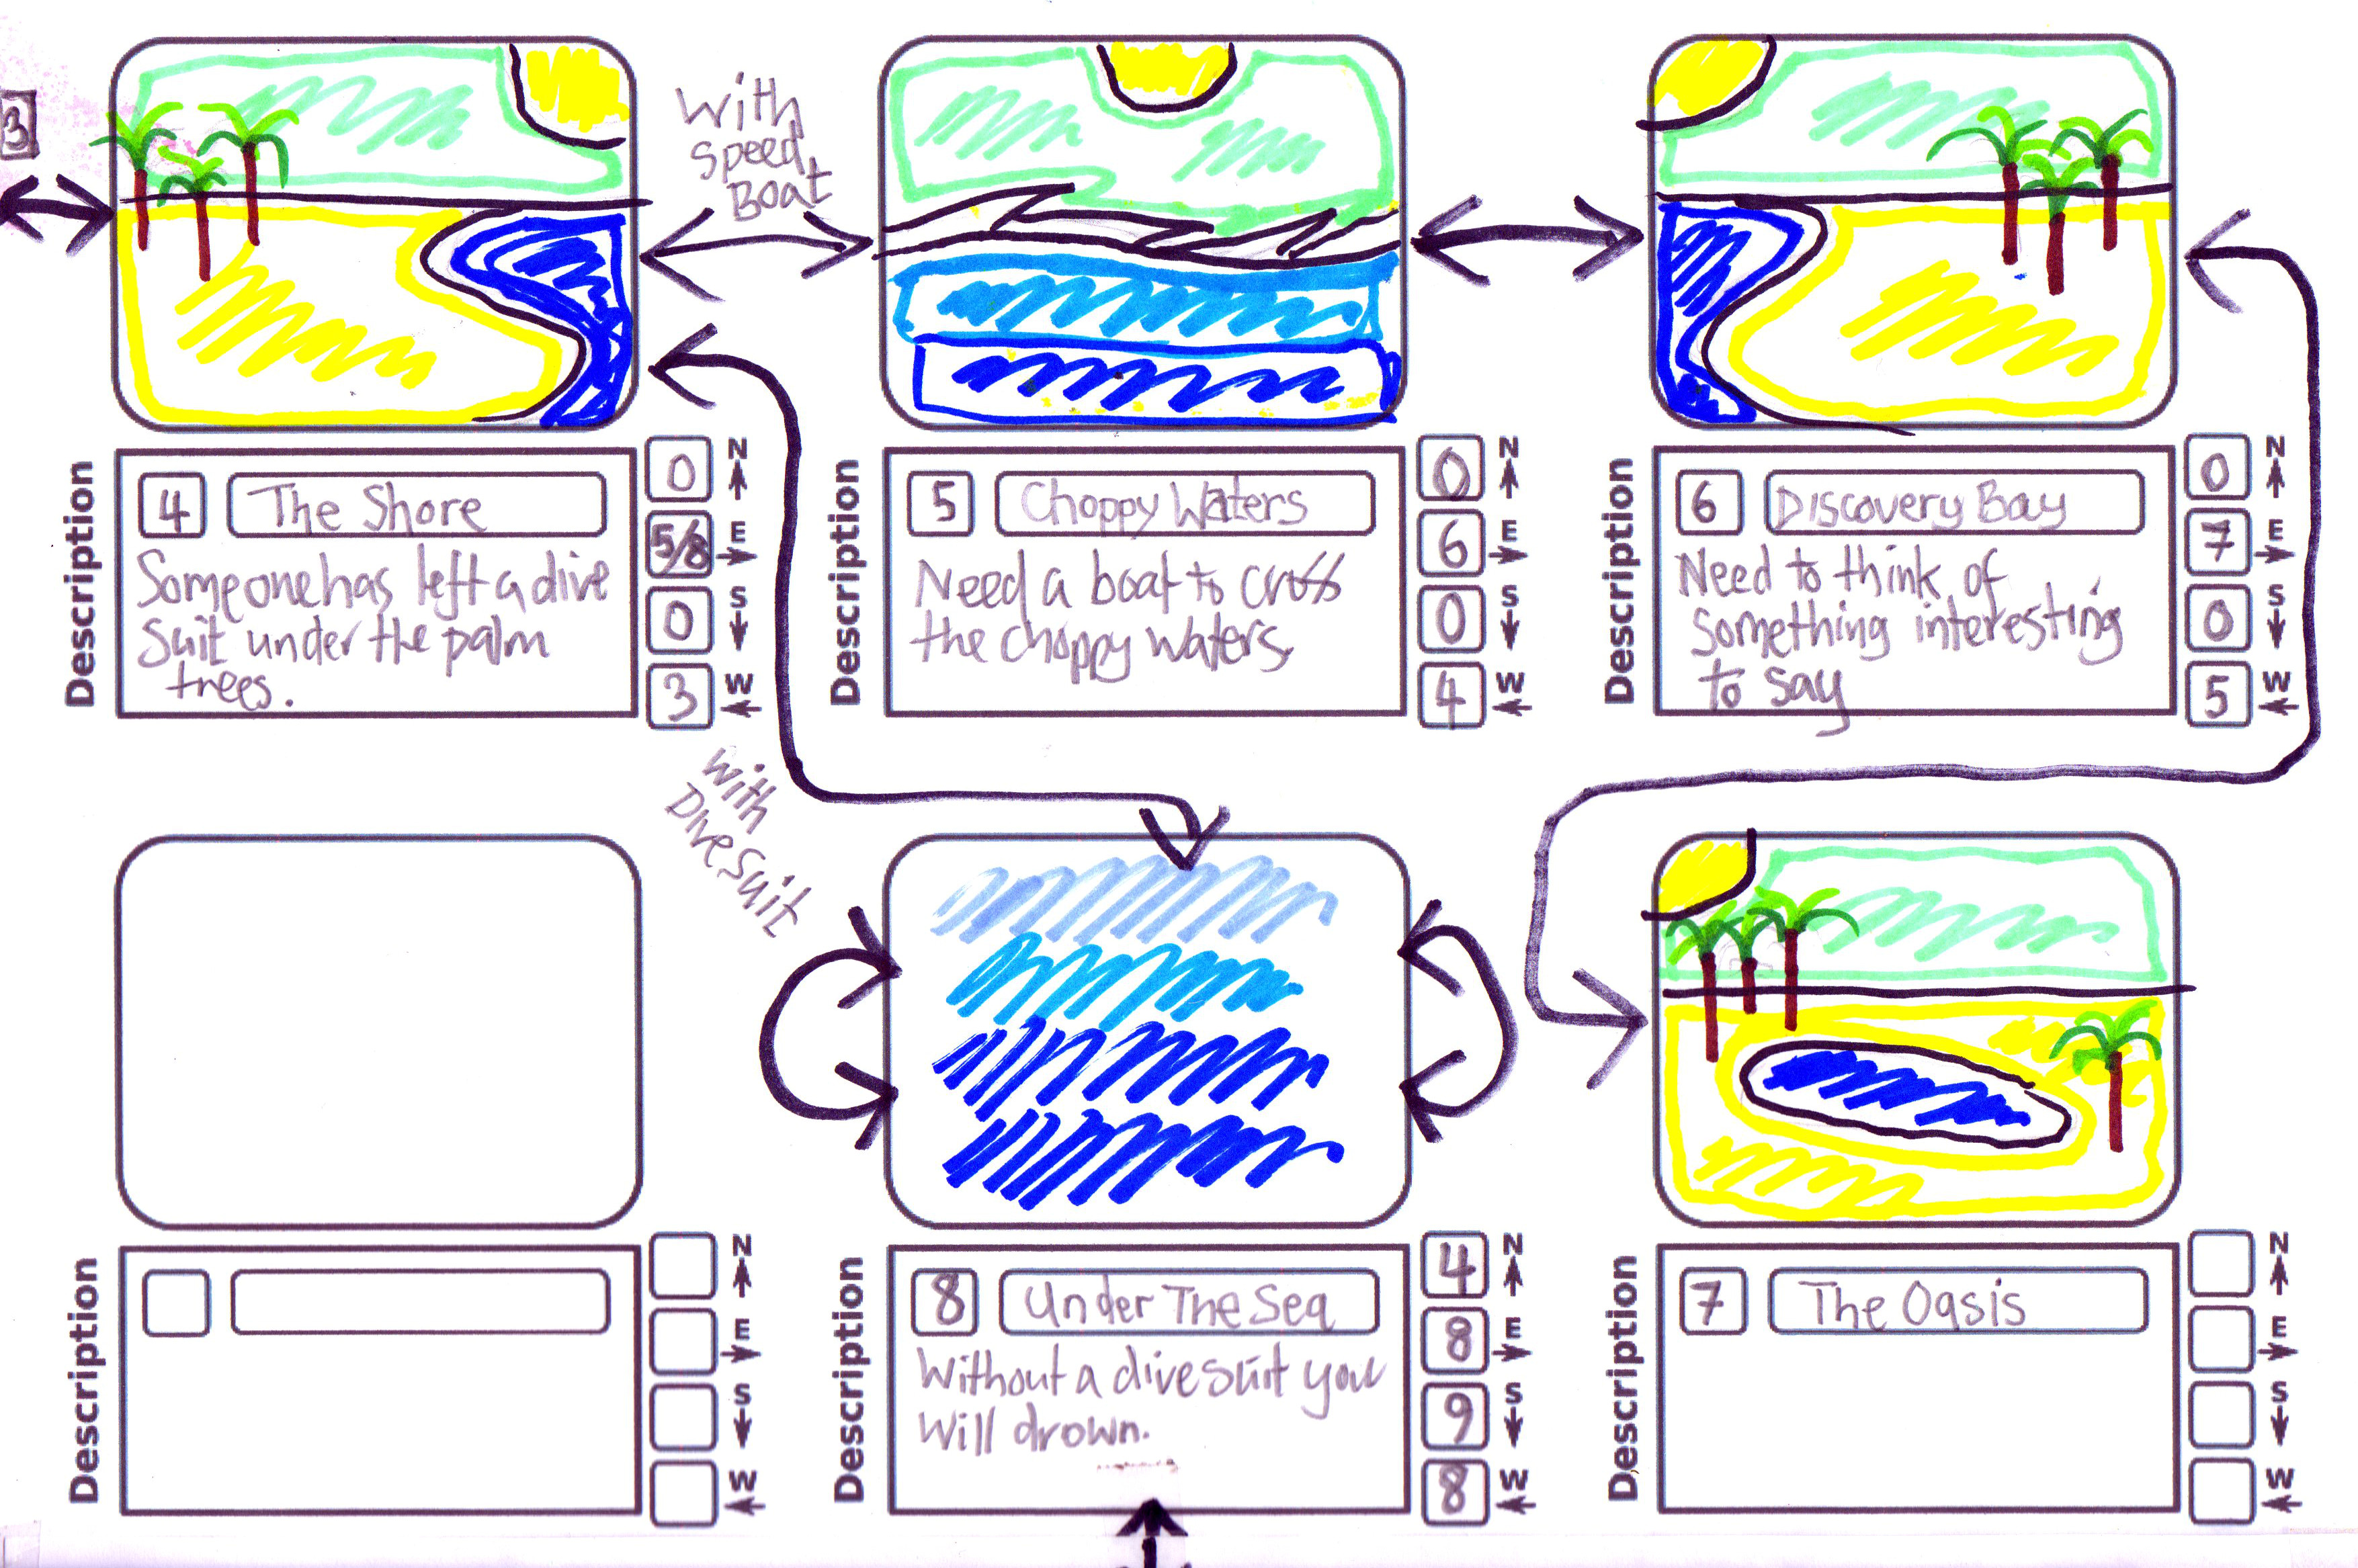 3
With
Speed
Boat
Description
4 The Shore
Someone has left a dive
suit under the palm
trees.
0 N
5/8 E
0 S
3 W
Description
5 Choppy Waters
Need a boat to cross
the choppy waters
0 N
6 E
0 S
4 W
Description
6 Discovery Bay
Need to think of
something interesting
to say
0 N
7 E
0 S
5 W
With
Dive Suit
Description
N
E
S
W
Description
8 Under The Sea
Without a dive suit you
will drown.
4 N
8 E
9 S
8 W
Description
7 The Oasis
N
E
S
W